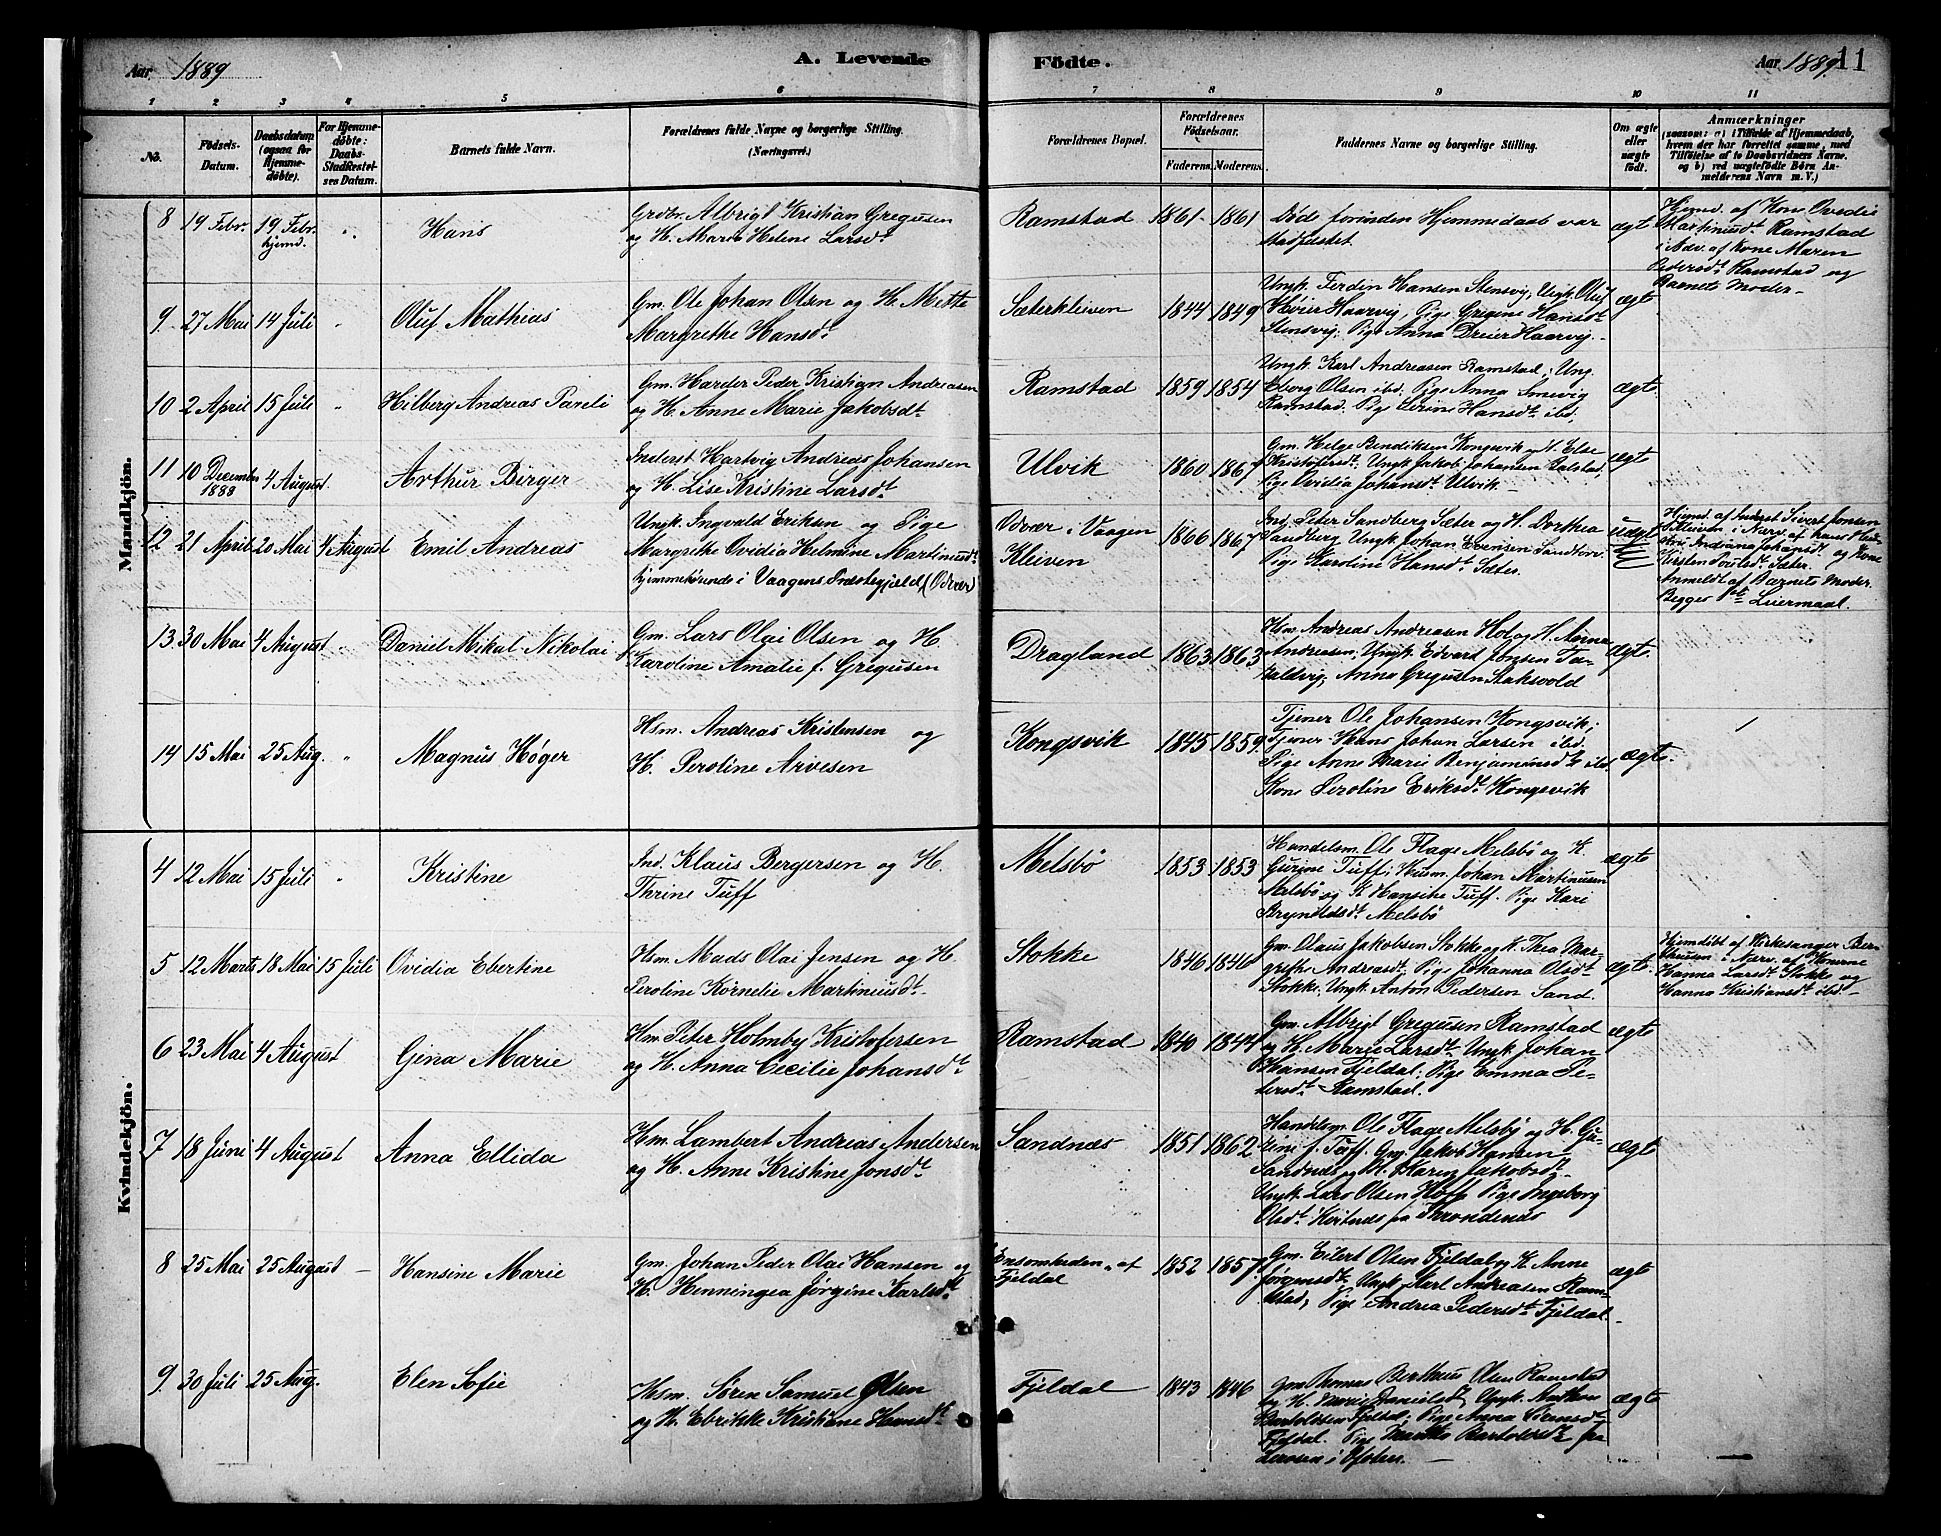 Aar 1889
A. Levende
Födte.
Aar 1889.
11
1 2 3 4 5 6 7 8 9 10 11
No.
Födsels-
Datum.
Daabsdatum
(ogsaa for
Hjemme-
döbte).
For Hjemme-
döbte:
Daabs-
Stadfæstel-
ses Datum.
Barnets fulde Navn.
Forældrenes fulde Navne og borgerlige Stilling.
(Næringsvei.)
Forældrenes Bopæl.
Forældrenes
Födselsaar.
Faderens. Moderens.
Faddernes Navne og borgerlige Stilling.
Om ægte
eller
uægte
født.
Anmærkninger
(saasom: a) i Tilfælde af Hjemmedaab,
hvem der har forrettet samme, med
Tilföielse af to Daabsvidners Navne,
og b) ved uægtefödte Börn An-
melderens Navn m. V.)
Mandkjön.
8 19 Febr. 19 Febr. hjemd. " Hans
Grdbr. Albrigt Kristian Gregusen
og H. Marie Helene Larsdt.
Ramstad 1861 1861
Døde forinden Hjemmedaab var
stadfæstet.
ægt
Hjemd. af Kone Ovedie
Martinusdt. Ramstad
i Nærv. af Kone Maren
Pedersdt. Ramstad og
Barnets Moder.
9. 27 Mai 14 Juli " Oluf Mathias
Gm. Ole Johan Olsen og H. Mette
Margrethe Hansdt.
Sæterkleiven 1844 1849
Ungk. Ferdin Hansen Stensvig, Ungk. Oluf
Haarvig, Pige Gregine Hansdt.
Stensvig; Pige Anna Dreier Haarvig.
ægte
10 2 April 15 Juli " Hilberg Andreas Pareli
Gm. Harder Peder Kristian Andreasen
og H. Anne Marie Jakobsdt.
Ramstad 1859 1854
Ungk. Karl Andreasen Ramstad; Ung.
Eborg Olsen ibd. Pige Anna
Ramstad. Pige Hansdt. ibd.
ægte
11 10 December 1888 4 August Arthur Birger
Inderst Hartvig Andreas Johansen
og H. Lise Kristine Larsdt.
Ulvik 1860 1867
Gm. Helge Bendiksen Kongsvik og H. Else
Kristofersdt. Ungk. Jakob Johansen
Pige Ovidia Johansdt. Ulvik
ægte
12 21 April 20 Mai 4 August Emil Andreas
Ungk. Ingvald Eriksen og Pige
Margrethe Ovidia Helmine Martinusdt.
hjemmehørende i Vaagens Præstegjæld (Odvær)
Odvær i Vaagen
Kleiven
1866 1867
Ind. Peter Sandberg Sæter og H. Dorthea
Sandberg. Ungk. Johan Evensen Sandtorv.
Pige Karoline Hansdt. Sæter.
uægt
Hjemd. af Inderst Sivert Jonsen
Kleiven i Nærv. af hans
Indiana Johansdt. og Kone
Kirsten Sæter.
Anmeldt af Barnets Moder.
Begges 1ste Leiermaal.
13. 30 Mai 4 August " Daniel Mikal Nikolai
Gm. Lars Olai Olsen og H.
Karoline Amalie f. Gregusen
Dragland 1863 1863
Hsm. Andreas Andreasen Hol og H. Anna
Andreasen; Ungk. Edvart Jonsen
Anna Gregusen Staksvold
ægte.
14 15 Mai 25 Aug. " Magnus Høger
Hsm. Andreas Kristensen og
H. Peroline Arvesen
Kongsvik 1845 1859
Tjener Ole Johansen Kongsvik;
Tjener Hans Johan Larsen ibd.
Pige Anne Marie Benjaminsdt. ibd.
Kone Peroline Eriksdt. Kongsvik
ægte.
Kvindekjön.
4 12 Mai 15 Juli " Kristine
Ind. Klaus Bergersen og H.
Thrine Tuff
Melsbö 1853 1853
Handelsm. Ole Flage Melsbö og H.
Gurine Tuff; Husm. Johan Martinusen
Melsbö og H. Hansine Tuff. Pige Kari
Melsbö
ægte
5 12 Marts 18 Mai 15 Juli Ovidia Ebertine
Hsm. Mads Olai Jensen og H.
Peroline Kornelie Martinusdt.
Stokke 1846 1846
Gm. Olaus Jakobsen Stokke og H. Thea Mar-
grethe Andreasdt; Pige Johanna Olsdt.
Stokke; Ungk. Anton Pedersen Sand.
ægte.
Hjemdøbt af Kirkesanger
i Nærv. af Konerne
Hanna Larsdt. Stokke og
Hanna Kristiansdt. ibd.
6 23 Mai 4 August Gina Marie
Hsm. Peter Holmby Kristofersen
og H. Anna Cecilie Johansdt.
Ramstad 1840 1844
Gm. Albrigt Gregusen Ramstad
og H. Marie Larsdt. Ungk. Johan
Hansen Fjeldal; Pige Emma Pe-
dersdt. Ramstad.
ægte
7 18 Juni 4 August Anna Ellida
Hsm. Lambert Andreas Andersen
og H. Anne Kristine Jonsdt.
Sandnæs 1851 1862
Handelsm. Ole Flage Melsbö og H. Gu-
rine f. Tuff. Gm. Jakob Hansen
Sandnes og H. Karen Jakobsdt.
Ungk. Lars Olsen Hoff. Pige Ingeborg
Olsdt. Kvitnes fra Throndenæs
ægte
8 25 Mai 25 August — Hansine Marie
Gm. Johan Peder Olai Hansen og
H. Henningea Jørgine Karlsdt.
Ensomheden af
Fjeldal
1852 1857
Gm. Eilert Olsen Fjeldal og H. Anne
Jørgensdt. Ungk. Karl Andreasen Ram-
stad; Pige Andrea Pedersdt. Fjeldal.
ægt
9. 30 Juli 25 Aug. Elen Sofie
Hsm. Sören Samuel Olsen
og H. Ebrikke Kristiane Hansdt.
Fjeldal 1843 1846
Gm. Thomas Berthus Olsen Ramstad
og H. Marie Danielsdt, Ungk. Nathan
Bartoldsen Fjeldal; Pige Anna
Fjeldal. Pige Bartoldsdt. fra
i Ofoten.
ægte